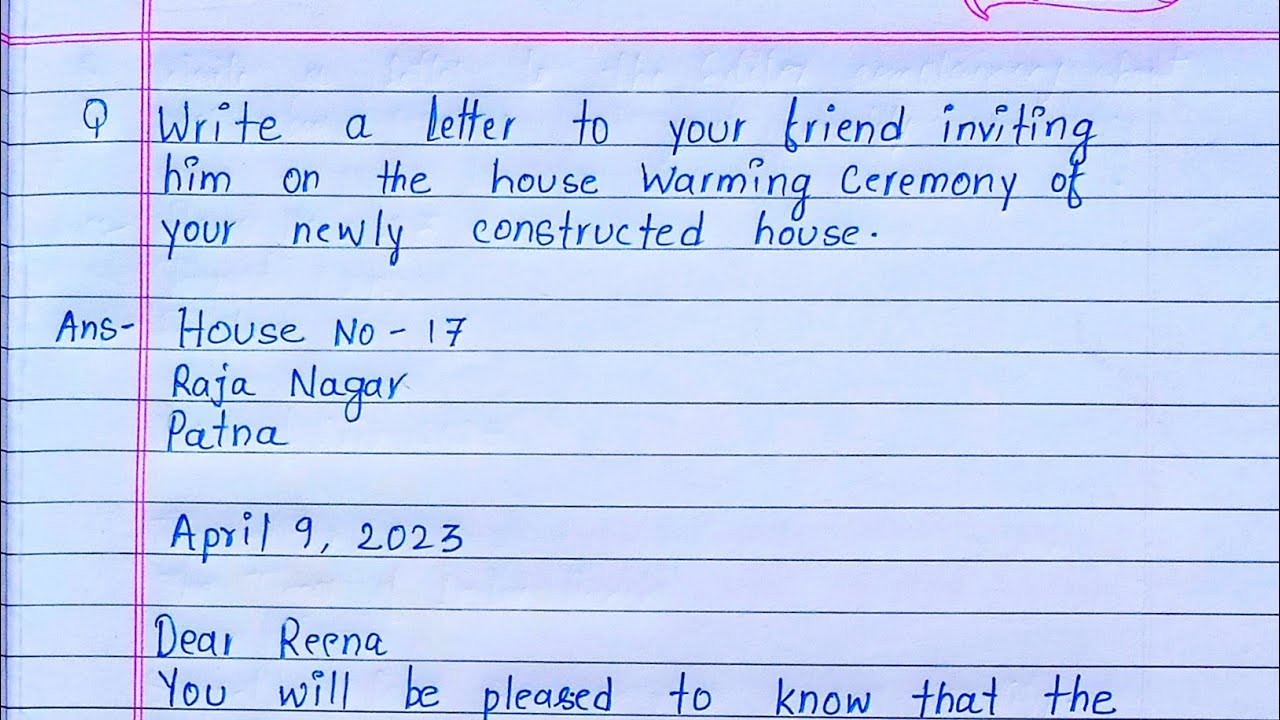 Q Write a letter to your friend inviting
him on the house warming Ceremony of
your newly constructed house.
Ans- House No - 17
Raja Nagar
Patna
April 9, 2023
Dear Reena
You will be pleased to know that the